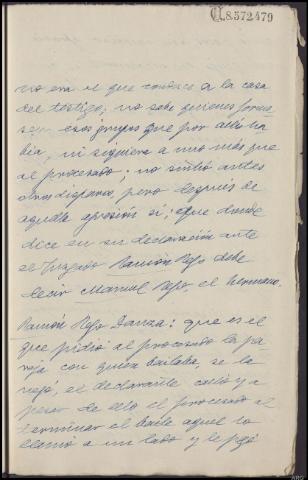 C.8.572.479
no era el que conduce a la casa
del testigo; no sabe quienes forma
sen esos grupos que por allí ha
bia, ni siquiera a uno más que
al procesado; no sintió antes
otros disparos, pero después de
aquella agresión si; que donde
dice en su declaración ante
el Juzgado Ramón Rejo debe
decir Manuel Rejo, el hermano.
Ramón Rejo Danza: que es el
que pidió al procesado la pa
reja con quien bailaba, se la
negó, el declarante calló y a
pesar de ello el procesado al
terminar el baile aquel lo
llamó a un lado y le pegó